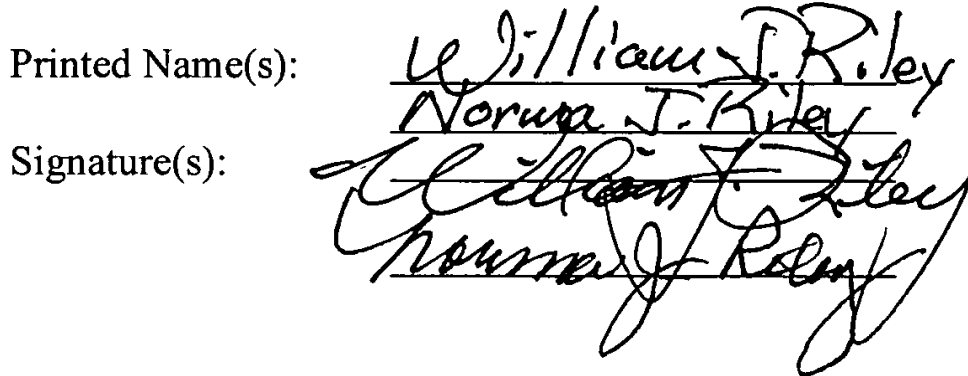 Printed Name(s): William J. Riley
Norma J. Riley
Signature(s): William J. Riley
Norma J. Riley